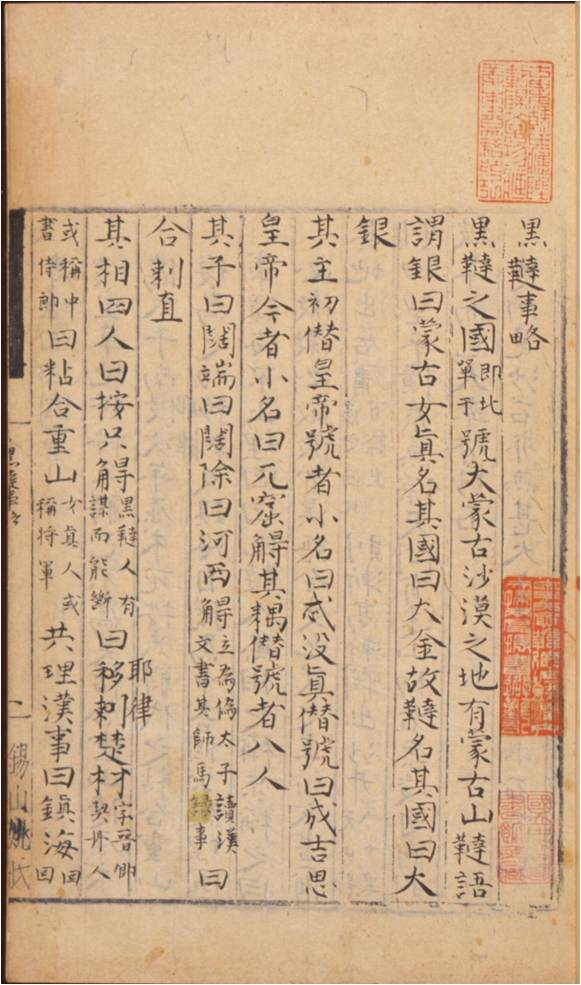 黑韃事略
黑韃之國即北單于號大蒙古沙漠之地有蒙古山韃語
謂銀曰蒙古女真名其國曰大金故韃名其國曰大
銀
其主初僣皇帝號者小名曰忒没真僣號曰成吉思
皇帝今者小名曰兀窟䚟其耦僣號者八人
其子曰闊端曰闊除曰河西䚟立為偽太子讀漢文書其師馬錄事曰
合剌直
其相四人曰按只䚟黑韃人有謀而能斷曰移剌楚材字晉卿契丹人
耶律
或稱中書侍郎曰粘合重山女真人或稱將軍共理漢事曰鎮海回回
錫山姚氏